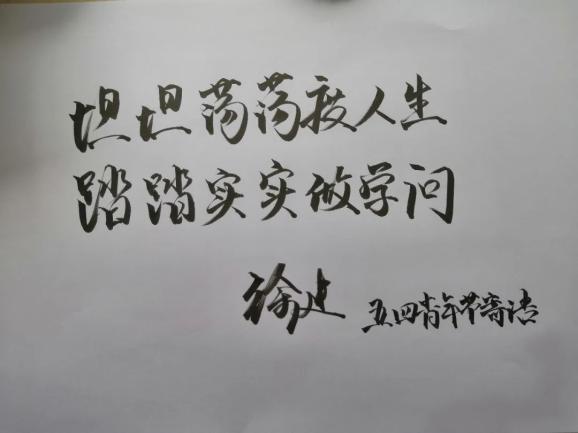 坦坦荡荡度人生
踏踏实实做学问
徐建 五四青年节寄语